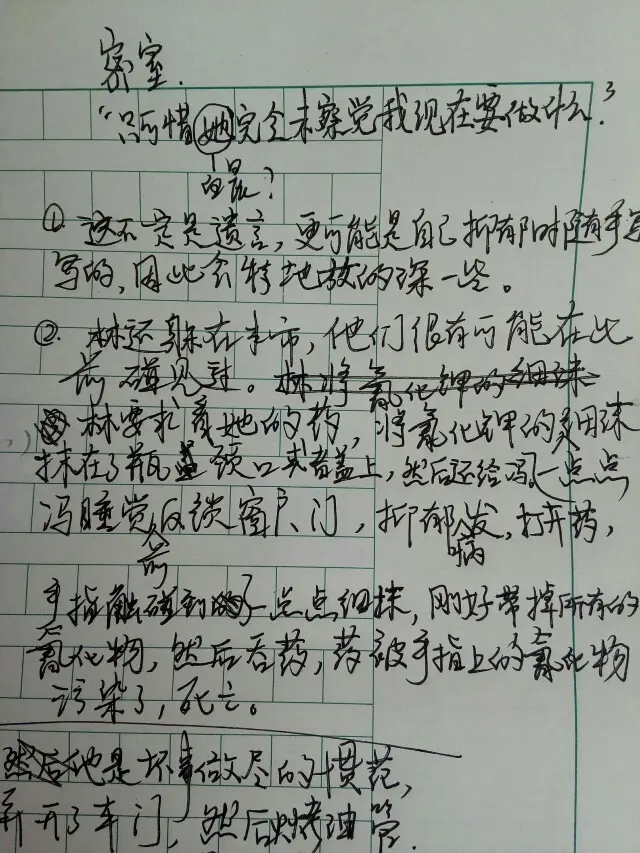 密室.
“只可惜她完全未察觉我现在要做什么.”
?
① 这不一定是遗言，更可能是自己抑郁时随手写
写的，因此会特地放的深一些。
② 林还躲在本市，他们很有可能在此
前碰见过。林将氰化钾的细沫
林要求看她的药，将氰化钾的细沫
抹在了瓶盖颈口或者盖上，然后还给冯。一点点
冯睡觉前反锁窗户、门，抑郁发病，打开药，
手指触碰到了一点点细抹，刚好带掉所有的
氰化物，然后吞药，药被手指上的氰化物
污染了，死亡。
然后他是坏事做尽的惯犯，
开了车门，然后烤油管.